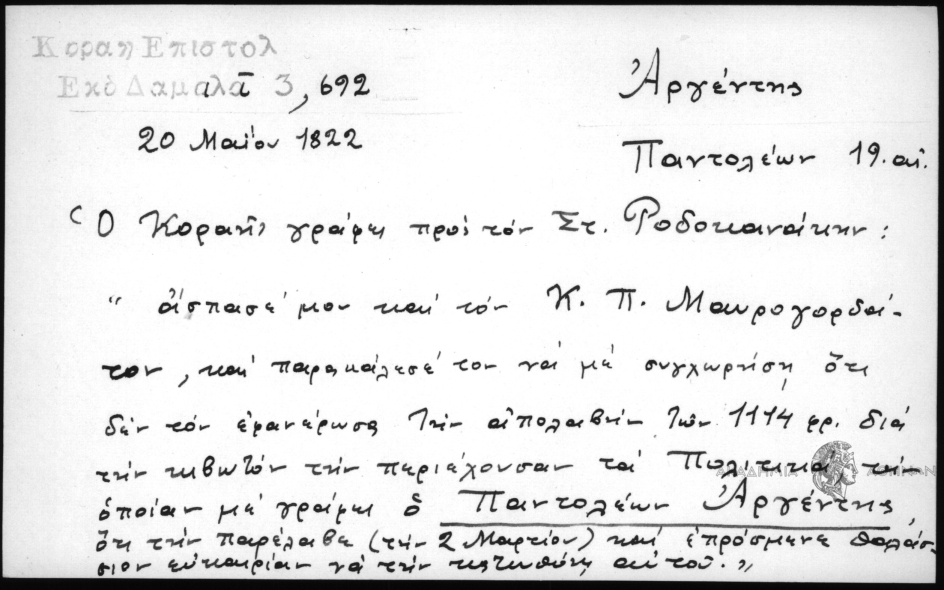 Κοραῆ Επιστολ
Εκδ Δαμαλᾶ Ι͞Ι 3, 692
20 Μαΐου 1822
Ἀργέντης
Παντολέων 19. αἰ.
Ὁ Κοραῆς γράφει πρὸς τὸν Στ. Ροδοκανάκην:
"ἄσπασέ μου καὶ τὸν Κ. Π. Μαυρογορδά-
τον, καὶ παρακάλεσέ τον νὰ μὲ συγχωρήσῃ ὅτι
δὲν τὸν ἐφανέρωσα τὴν ἀπολαβὴν τῶν 1114 φρ. διὰ
τὴν κιβωτὸν τὴν περιέχουσαν τὰ Πολιτικὰ τὴν
ὁποίαν μὲ γράφει ὁ Παντολέων Ἀργέντης
ὅτι τὴν παρέλαβε (τὴν 2 Μαρτίου) καὶ ἐπρόσμενε θαλάσ-
σιον εὐκαιρίαν νὰ τὴν κατευθύνῃ αὐτοῦ."